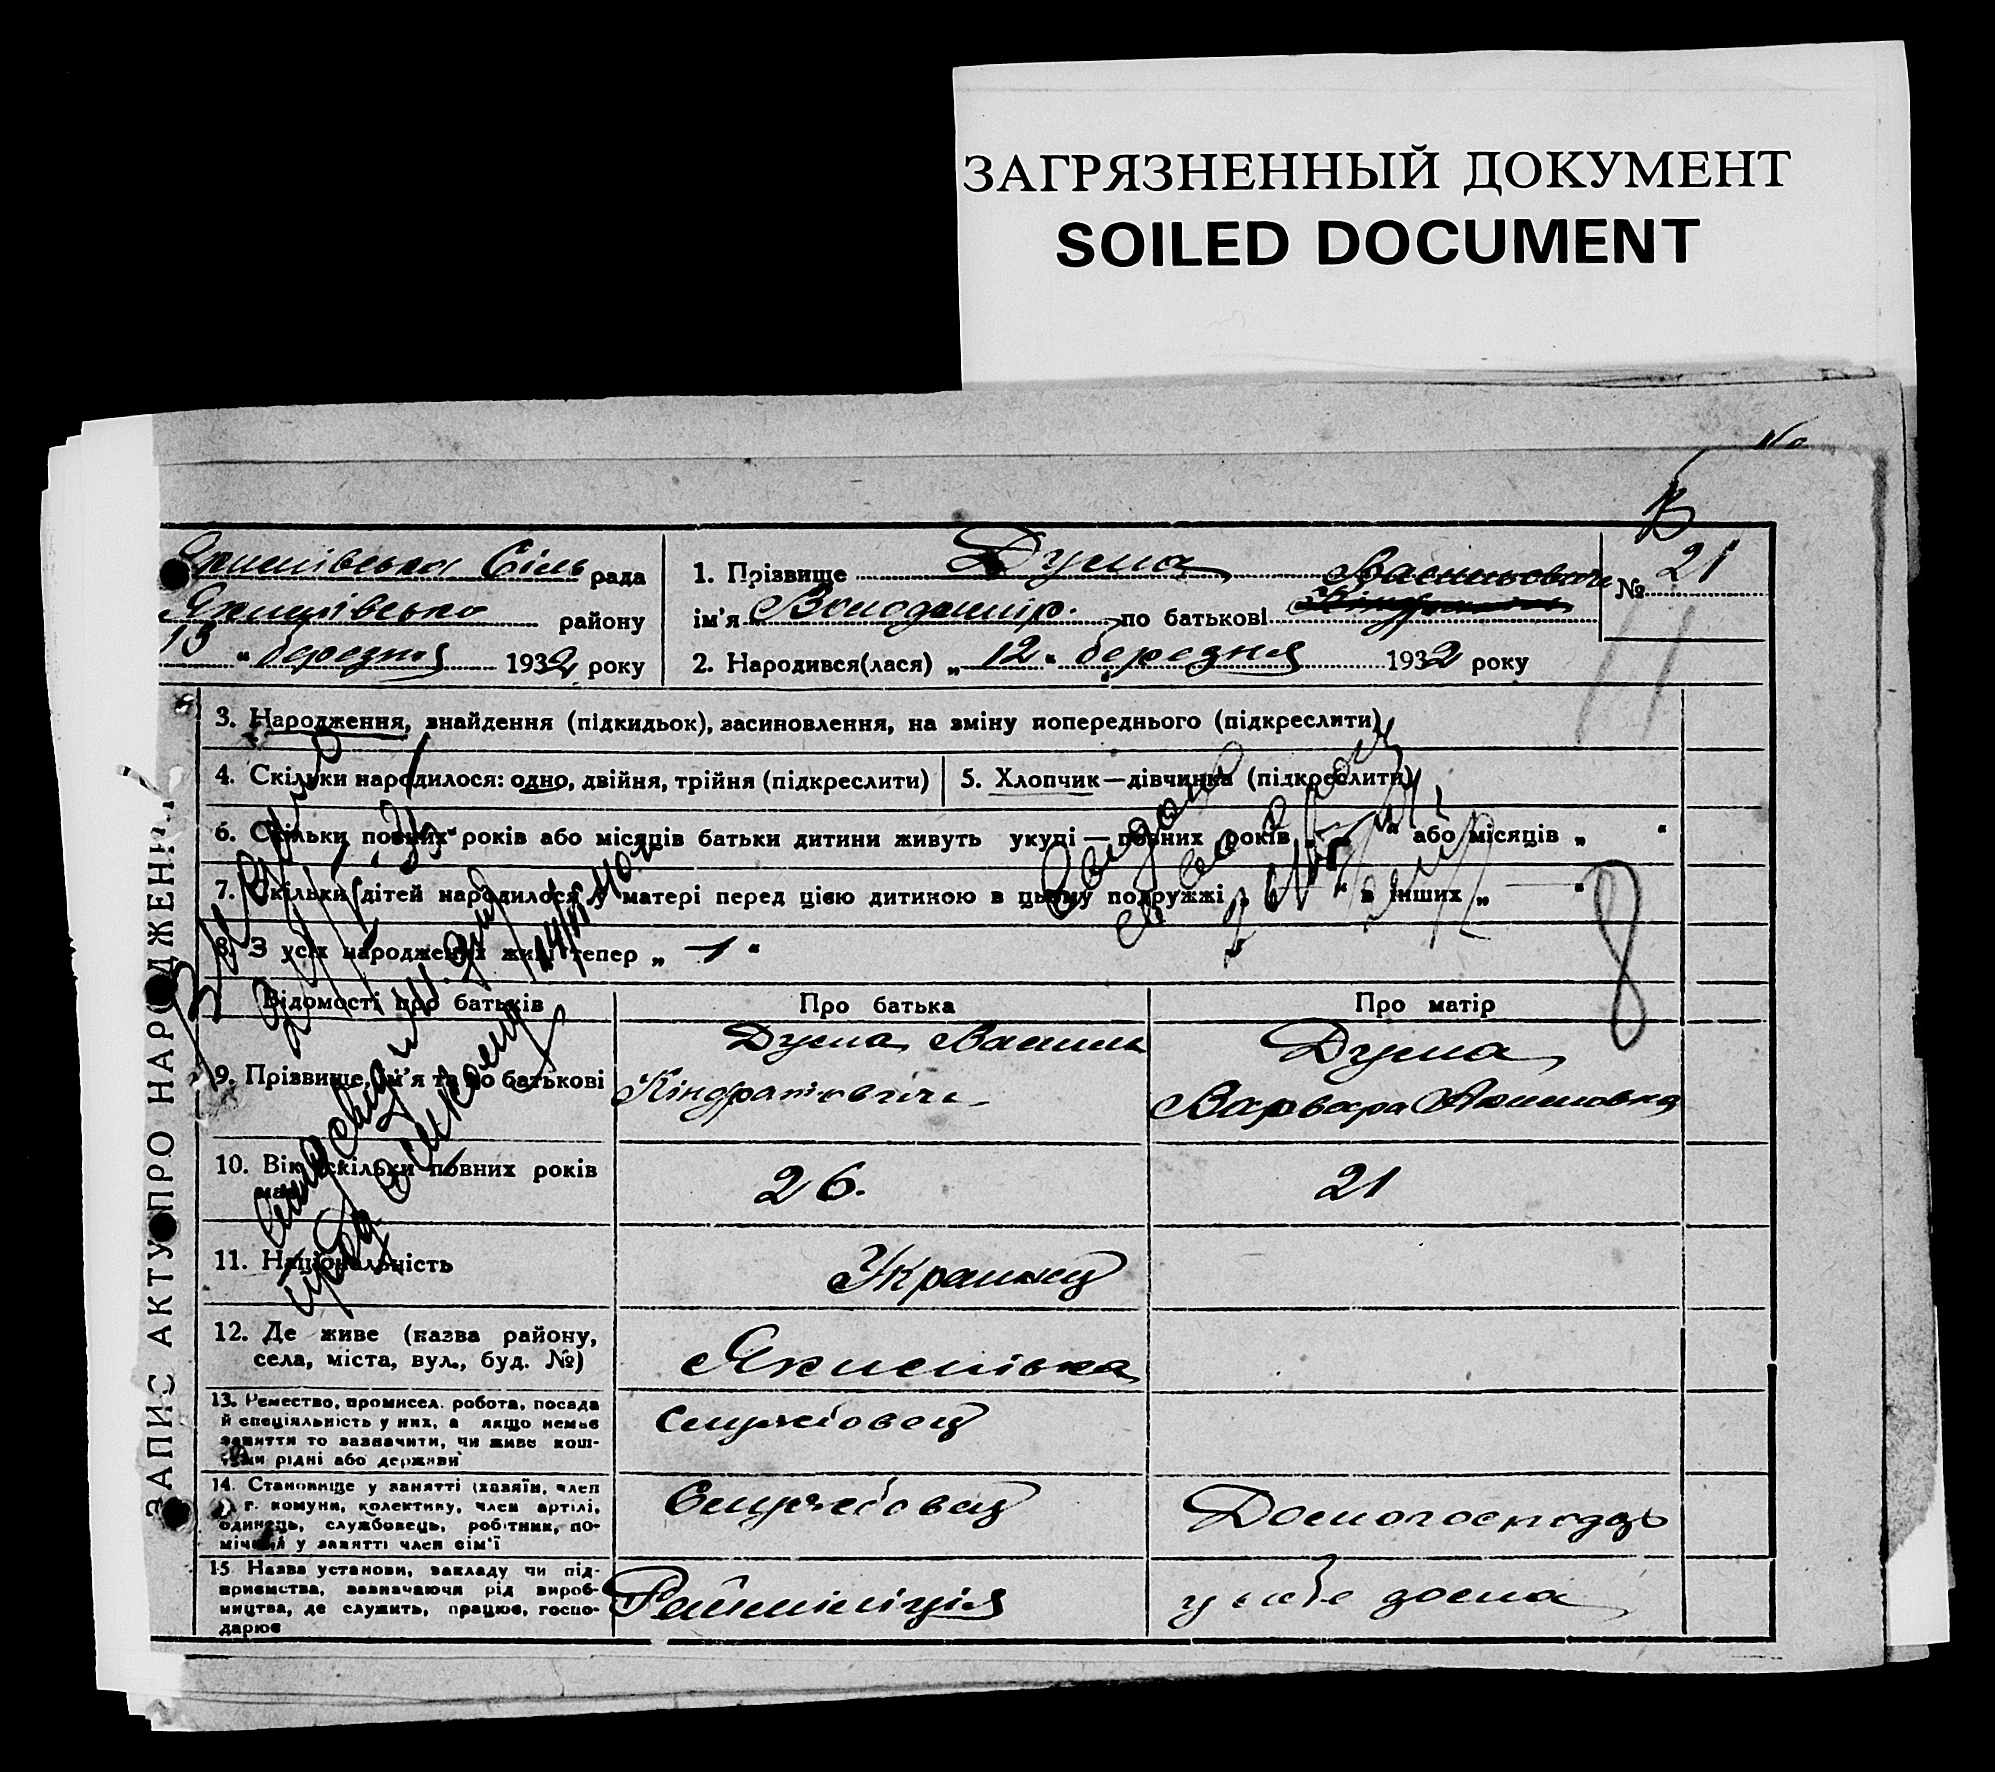 ЗАГРЯЗНЕННЫЙ ДОКУМЕНТ
SOILED DOCUMENT
№
В
Якимівська Сіль рада
Якимівсько району
13 " березня 1932 року
1. Прізвище Дума Васильович
ім'я Володимір. по батькові
№ 21
2. Народився(лася) „ 12 " березня 1932 року
11
3. Народження, знайдення (підкидьок), засиновлення, на зміну попереднього (підкреслити)
4. Скільки народилося: одно, двійня, трійня (підкреслити)
5. Хлопчик — дівчинка (підкреслити)
6. Скільки повних років або місяців батьки дитини живуть укупі — повних років „ " або місяців „ "
7. Скільки дітей народилося у матері перед цією дитиною в цьому подружжі „ " в інших „ — "
8. З усіх народжених живі тепер „ 1 "
8
Відомості про батьків
Про батька
Про матір
9. Прізвище, ім'я та по батькові
Дума Василь
Кіндратович
Дума
Варвара
10. Вік, скільки повних років має
26.
21
11. Національність
Українці
12. Де живе (назва району,
села, міста, вул., буд. №)
Якимівка
13. Ремество, промисел, робота, посада
й спеціяльність у них, а якщо немає
заняття то зазначити, чи живе кош-
тами рідні або держави
Службовец
14. Становище у занятті (хазяїн, член
с. г. комуни, колективу, член артілі,
одинець, службовець, робітник, по-
мічний у занятті член сім'ї
Службовец
Домогосподар
15. Назва установи, закладу чи під-
приємства, зазначаючи рід вироб-
ництва, де служить, працює, госпо-
дарює
Райміліція
у себе дома
ЗАПИС АКТУ ПРО НАРОДЖЕННЯ